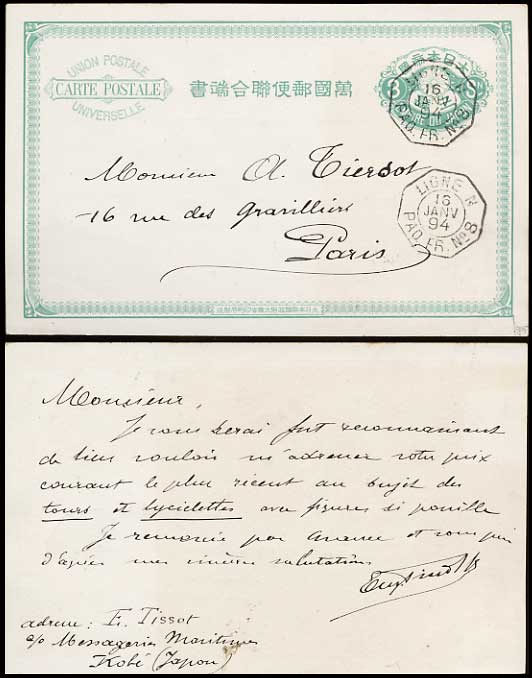 UNION POSTALE
CARTE POSTALE
UNIVERSELLE
書端合聯便郵國萬
LIGNE N
16
JANV
94
PAQ. FR. No 8
Monsieur A. Tiersot
16 rue des Gravilliers
Paris
LIGNE N
16
JANV
94
PAQ. FR. No 8
Monsieur,
Je vous serai fort reconnaissant
de bien vouloir m'adresser votre prix
courant le plus récent au sujet des
tours et bycidettes avec figures si possible
Je remercie par avance et vous prie
d'agréer mes sincères salutations
adresse : E. Tissot
c/o Messageries Maritimes
Kobé (Japon)